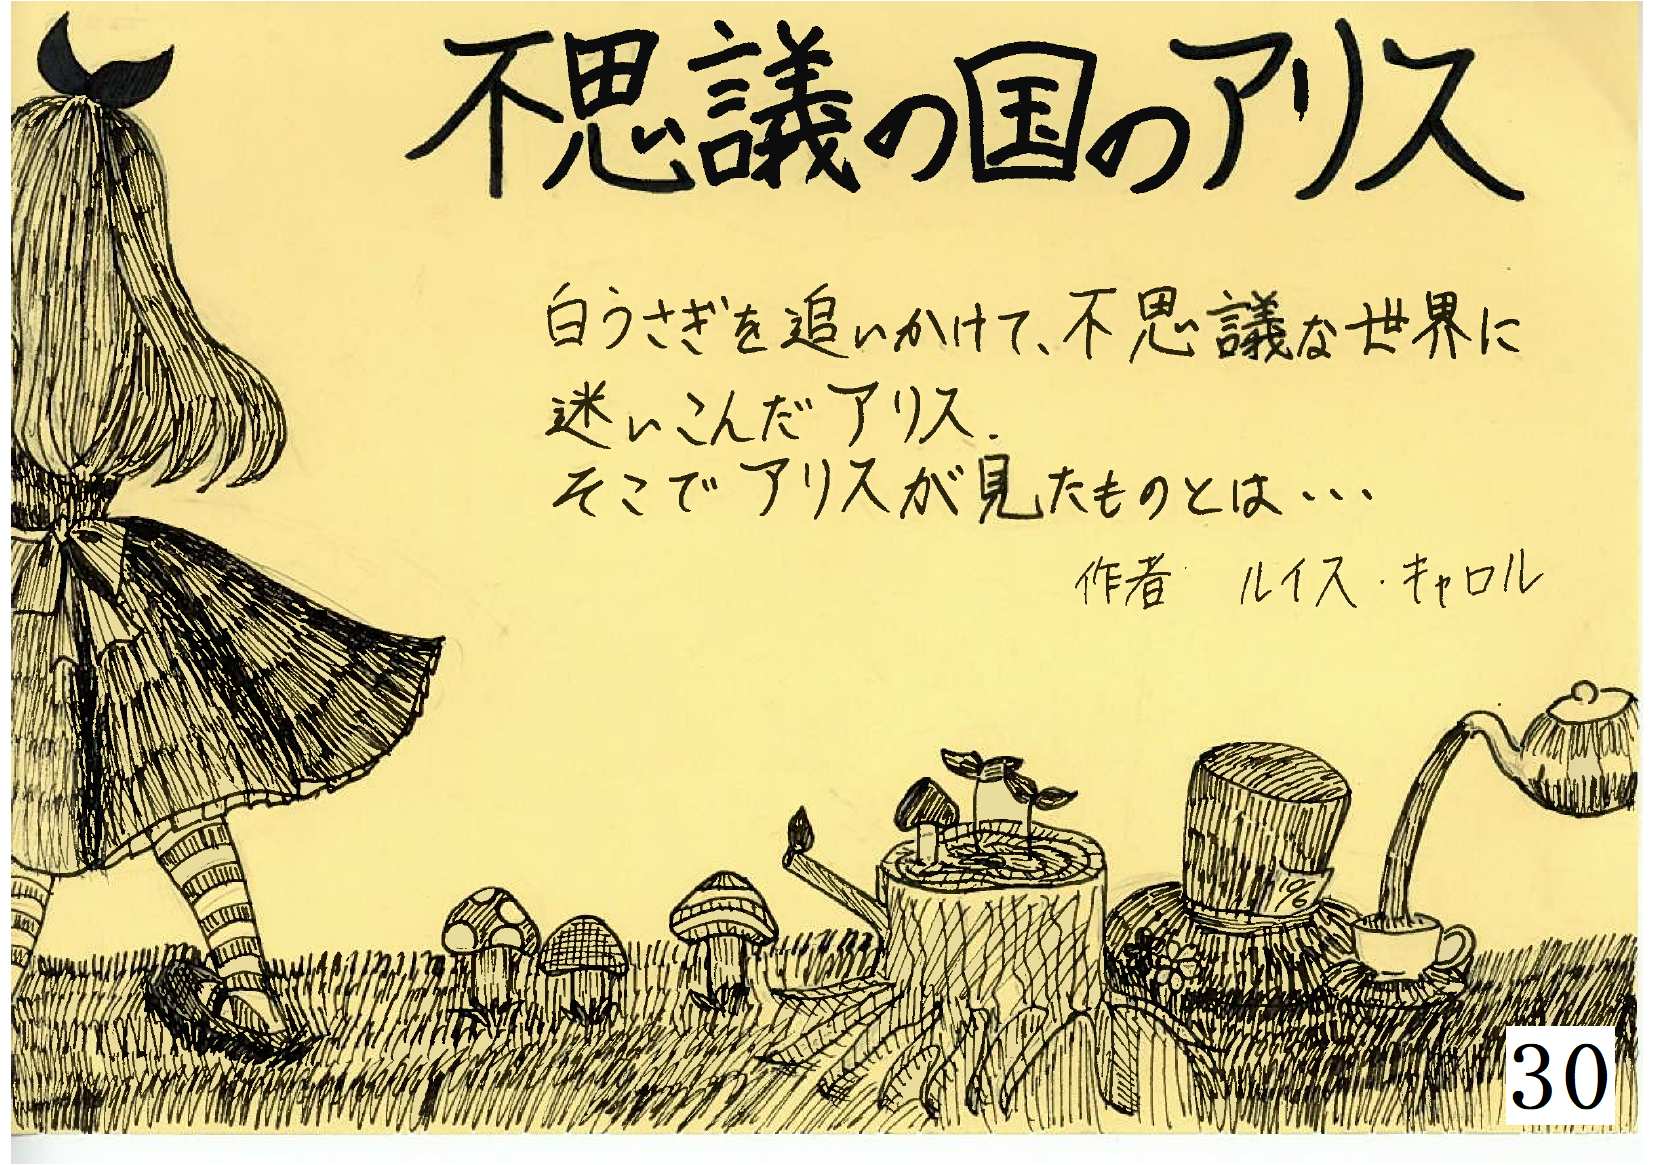 不思議の国のアリス
白うさぎを追いかけて、不思議な世界に
迷いこんだアリス.
そこでアリスが見たものとは・・・
作者 ルイス・キャロル
10/6
30